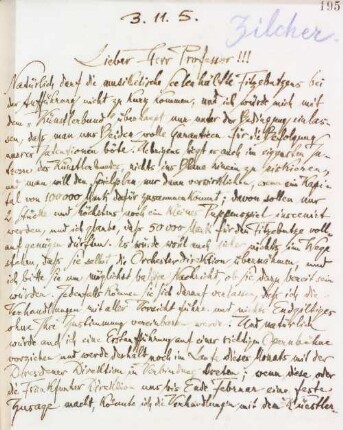 195
3. 11. 5.
Zilcher.
Lieber Herr Professor!!!
Natürlich darf die musikalisch bei
der Aufführung nicht zu kurz kommen, und ich würde mich mit
dem Künstlerbunde überhaupt nur unter der Bedingung einlas-
sen, daß man uns Beiden volle Garantieen für die Befolgung
unserer Intensionen böte. Uebrigens liegt es auch im eigensten In-
teresse des Künstlerbundes, nichts ins Blaue hinein zu
und man will den nur dann verwirklichen, wenn ein Kapi-
tal von 100000 Mark dafür zusammenkommt; davon sollen nur
2 Stücke und höchstens noch ein kleines Puppenspiel inscenirt
werden, und ich glaube, daß 50 000 Mark für das voll-
auf genügen dürften. Es würde wol auch sicher nichts im Wege
stehen, daß Sie selbst die Orchesterdirektion übernähmen, und
ich bitte Sie um möglichst baldige Nachricht, ob Sie dazu bereit sein
würden. Jedenfalls können Sie sich darauf verlassen, daß ich die
Verhandlungen mit aller Vorsicht führe und nichts Endgültiges
ohne Ihre Zustimmung vereinbaren werde. Und natürlich
würde auch ich eine Erstaufführung auf einer richtigen Opernbühne
vorziehen und werde deshalb noch im Laufe dieses Monats mit der
Dresdener Direktion in Verbindung treten; wenn diese oder
die Frankfurter Direktion uns bis Ende Februar eine feste
Zusage macht, könnte ich die Verhandlungen mit dem Künstler-